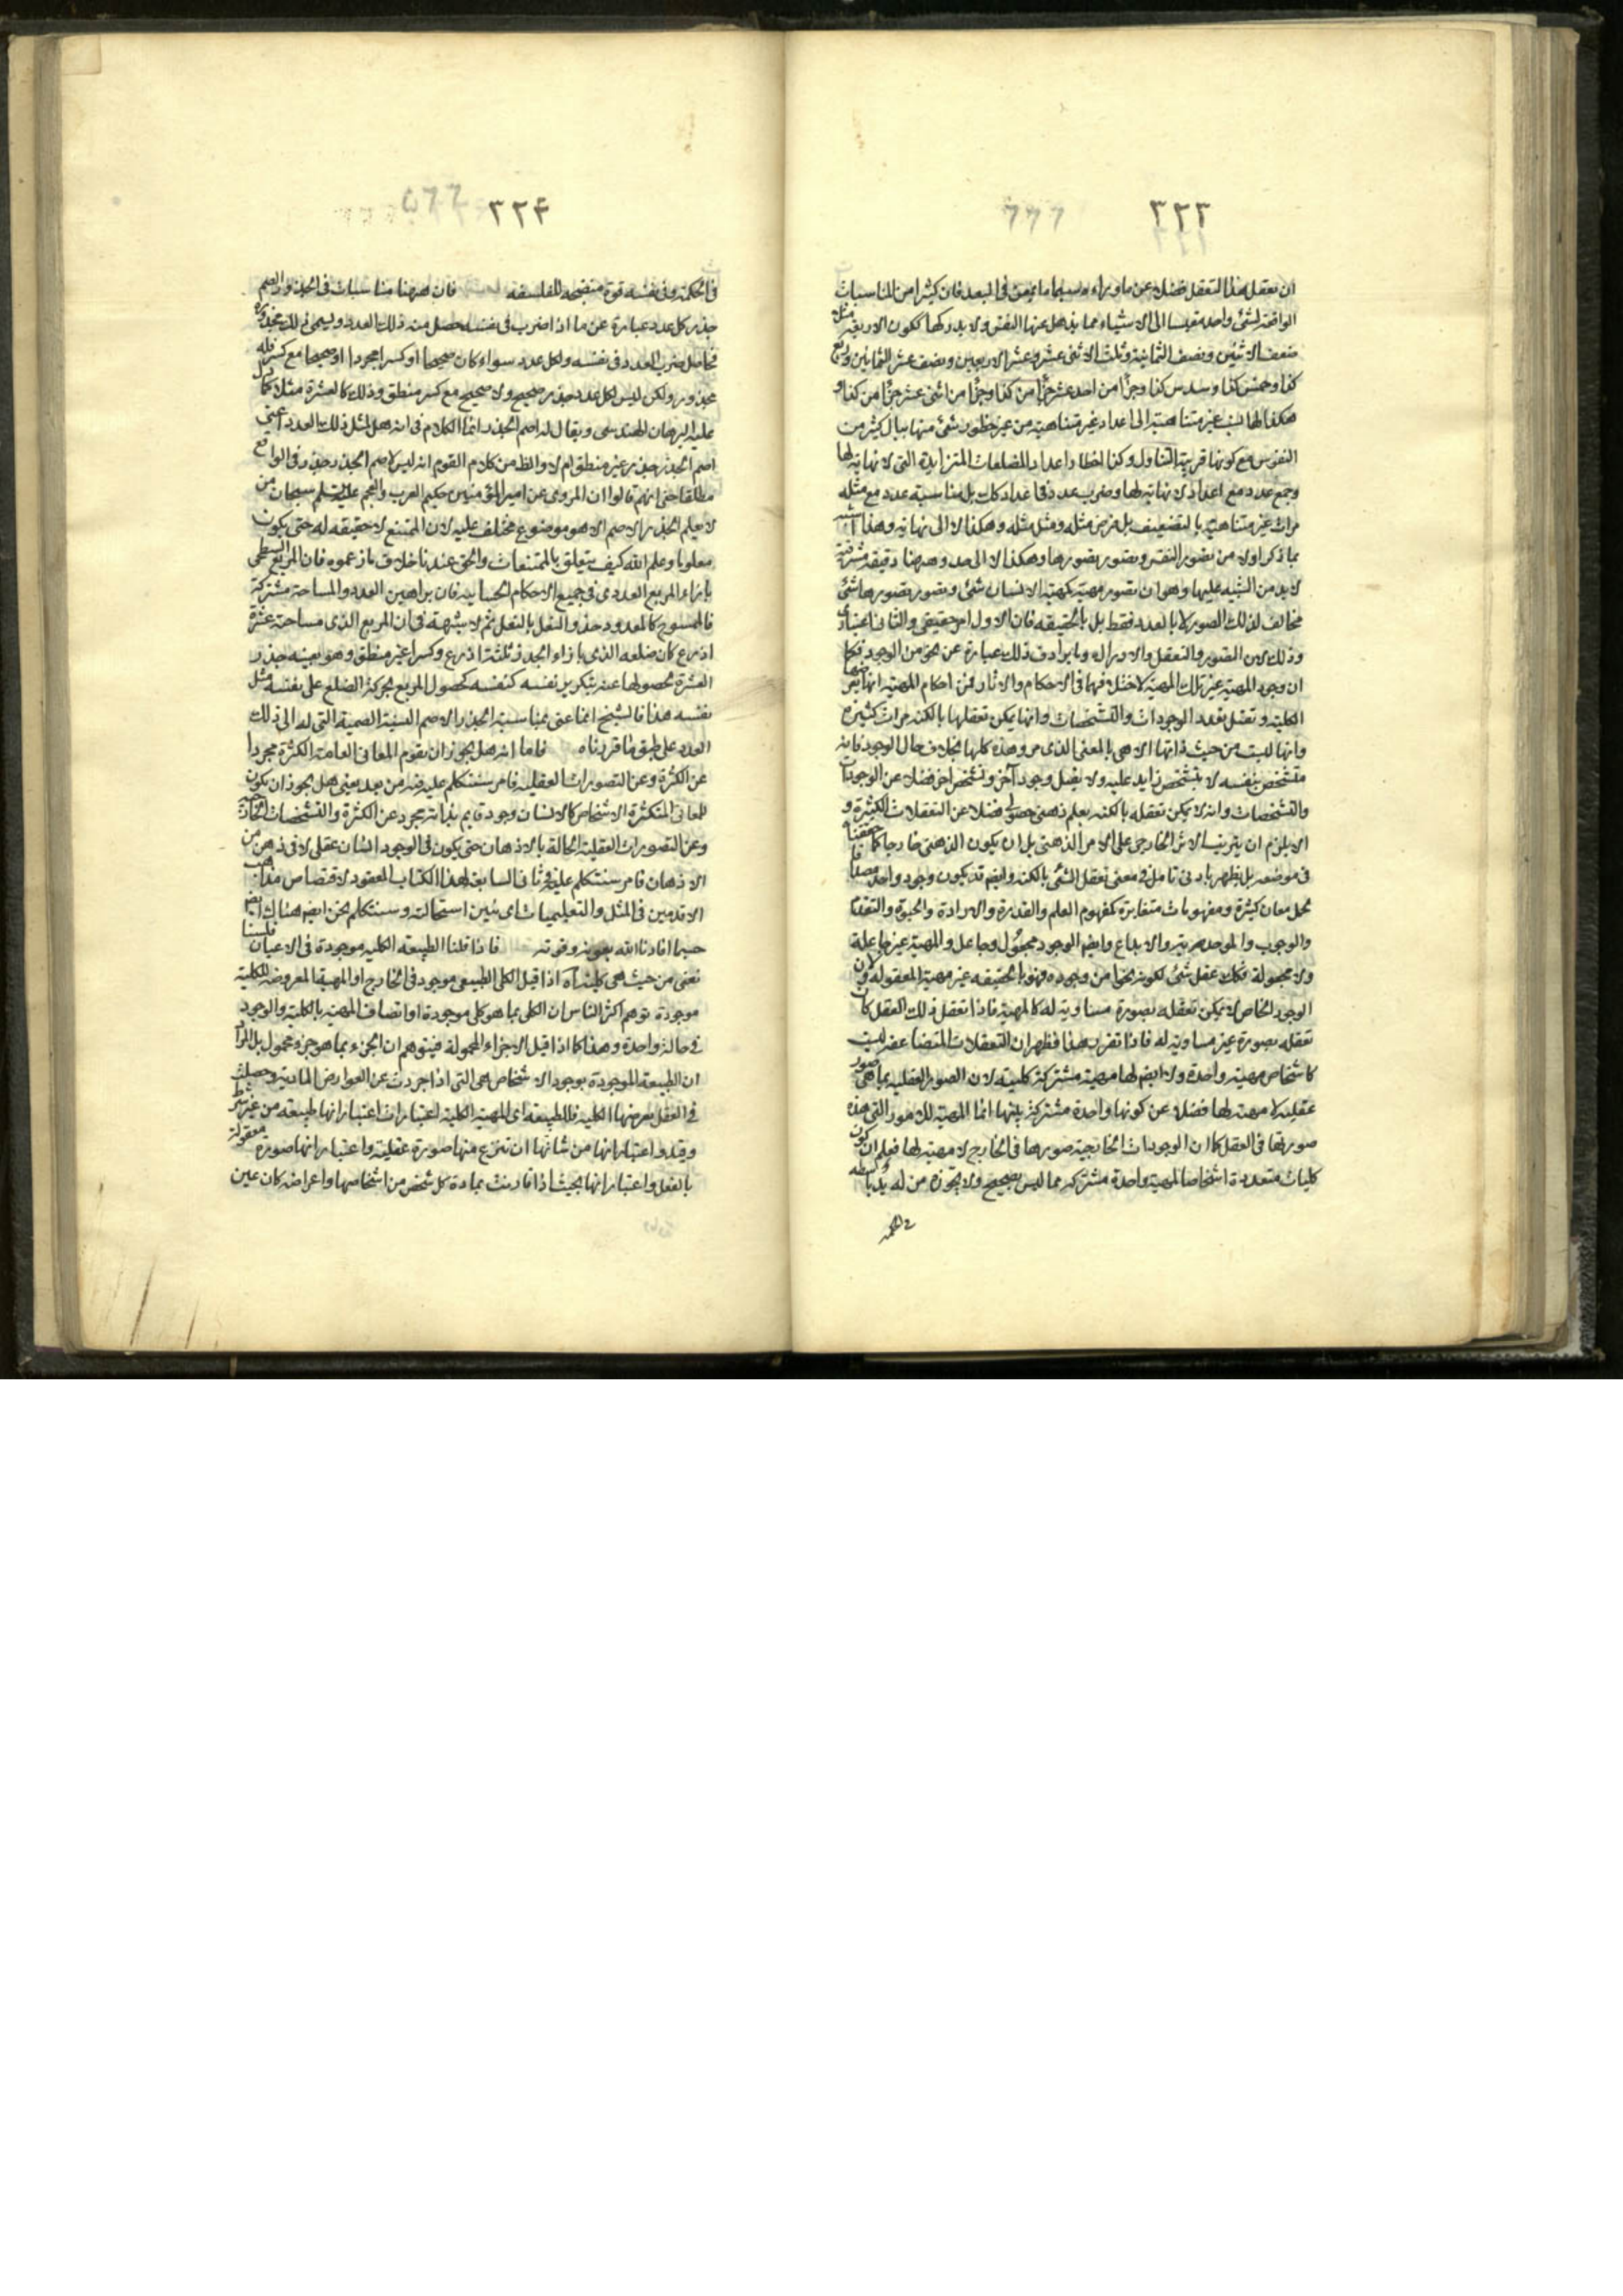 ٣٢٣
ان نعقل هذا التعقل فضلا عن ماوراءه وسيما ما يمعن فى البعد فان كثيرا من المناسبات
الواقعة لشئ واحد مقيسا الى الاشياء مما يذهل عنها النفس ولا يدركها ككون الاربعة مثلا
ضعف الاثنين ونصف الثمانية وثلث الاثنى عشر وعشر الاربعين ونصف عشر الثمانين وربع
كذا وخمس كذا وسدس كذا وجزأ من احد عشر جزأ من كذا وجزأ من اثنى عشر جزأ من كذا و
هكذا لها نسب غير متناهية الى اعداد غير متناهية من غير خطور شئ منها ببال كثير من
النفوس مع كونها قريبة التناول وكذا اخطار اعداد المضلعات المتزايدة التى لا نهاية لها
وجمع عدد مع اعداد لا نهاية لها وضرب عدد فى اعداد كك بل مناسبة عدد مع مثله
مرات غير متناهية بالتضعيف بل فرض مثله ومثل مثله وهكذا لا الى نهاية وهذا اشبه
بما ذكر اولا من تصور النفس وتصور تصورها وهكذا لا الى حد وههنا دقيقة مشرقية
لابد من التنبه عليها وهو ان تصور مهية كمهية الانسان شئ وتصور تصورها شئ
مخالف لذلك التصور لا بالعدد فقط بل بالحقيقه فان الاول امر حقيقى والثانى اعتبارى
وذلك لان التصور والتعقل والادراك وما يرادف ذلك عبارة عن نحو من الوجود فكما
ان وجود المهية غير تلك المهية لاختلافهما فى الاحكام والاثار فمن احكام المهية انها يعرضها
الكلية وتقبل تعدد الوجودات والتشخصات وانها يمكن تعقلها بالكنه مرات كثيرة
وانها ليست من حيث ذاتها الا هى بالمعنى الذى مر وهذه كلها بخلاف حال الوجود فانه
متشخص بنفسه لا بتشخص زايد عليه ولا يقبل وجودا آخر وتشخصا اخر فضلا عن الوجودات
والتشخصات وانه لا يمكن تعقله بالكنه بعلم ذهنى حصولى فضلا عن التعقلات الكثيرة و
الا يلزم ان يترتب الاثر الخارجى على الامر الذهنى بل ان يكون الذهنى خارجا كما حققنا
فى موضعه بل يظهر بادنى تامل فى معنى تعقل الشئ بالكنه وايضم قد يكون وجود واحد مصداقا
لحمل معان كثيرة ومفهومات متغايرة كمفهوم العلم والقدرة والارادة والحيوة والتقدم
والوجوب والموحدية والابداع وايضم الوجود مجعول وجاعل والمهية غير جاعلة
ولا مجعولة فكك عقل شئ لكونه نحوا من وجوده فهو بالحقيقه غير مهية المعقولة ولان
الوجود الخاص لا يمكن تعقله بصورة مساوية له كالمهية فاذا تعقل ذلك العقل كان
تعقله بصورة غير مساوية له فاذا تقرر هذا فظهر ان التعقلات المتضاعفه ليست
كاشخاص مهية واحدة ولا ايضم لها مهية مشتركة كلية لان الصور العقليه بما هى صور
عقلية لا مهية لها فضلا عن كونها واحدة مشتركة بينها انما المهية للامور التى هذه
صورتها فى العقل كما ان الوجودات الخارجية صورها فى الخارج لا مهية لها فعلم ان كون
كليات متعددة اشخاصا لمهية واحدة مشتركه مما ليس بصحيح ولا يجوزه من له يد باسطه
فى الحكمة
٣٢٤
فى الحكمة وفى نفسه قوة منفتحه للفلسفه فان ههنا مناسبات فى الجذور الصم
جذر كل عدد عبارة عن ما اذا ضرب فى نفسه حصل منه ذلك العدد ويسمى ذلك مجذوره
فحاصل ضرب العدد فى نفسه ولكل عدد سواء كان صحيحا او كسرا مجردا او صحيحا مع كسر فله
مجذور ولكن ليس لكل عدد جذر صحيح ولا صحيح مع كسر منطق وذلك كالعشرة مثلا كما دل
عليه البرهان الهندسى ويقال له اصم الجذر انما الكلام فى انه هل لمثل ذلك العدد اعنى
اصم الجذر جذر غير منطق ام لا والظ من كلام القوم انه ليس لاصم الجذر جذر فى الواقع
مطلقا حتى انهم قالوا ان المروى عن امير المؤمنين حكيم العرب والعجم عليه السلم سبحان من
لا يعلم الجذر الاصم الا هو موضوع مختلف عليه لان الممتنع لا حقيقه له حتى يكون
معلوما وعلم الله كيف يتعلق بالممتنعات والحق عندنا خلاف ما زعموه فان المربع السطحى
بازاء المربع العددى فى جميع الاحكام الحسابيه فان براهين العدد والمساحة مشتركة
فالممسوح كالمعدود حذو النعل بالنعل ثم لا شبهة فى ان المربع الذى مساحته عشرة
اذرع كان ضلعه الذى بازاء الجذر ثلثة اذرع وكسرا غير منطق وهو بعينه جذر
العشرة لحصولها عنه بتكرير نفسه كنفسه كحصول المربع بحركة الضلع على نفسه مثل
نفسه هذا فالشيخ انما عنى بمناسبة الجذر الاصم النسبة الصمية التى له الى ذلك
العدد على طبق ما قررناه فاما انه هل يجوز ان يقوم المعانى العامة الكثرة مجردا
عن الكثرة وعن التصورات العقليه فامر سنتكلم عليه فيه من بعد يعنى هل يجوز ان يكون
للمعانى المتكثرة الاشخاص كالانسان وجود قايم بذاته مجرد عن الكثرة والتشخصات الخارجية
وعن التصورات العقلية الحالة بالاذهان حتى يكون فى الوجود انسان عقلى لا فى ذهن من
الاذهان فامر سنتكلم عليه فى ثانى السابعة لهذا الكتاب المعقود لاقتصاص مذاهب
الاقدمين فى المثل والتعليميات اى نبين استحالته وسنتكلم نحن ايضم هناك ايضم
حسبما افادنا الله بعونه وقوته فاذا قلنا الطبيعه الكليه موجودة فى الاعيان فلسنا
نعنى من حيث هى كلية آه اذا قيل الكلى الطبيعى موجود فى الخارج او المهية المعروضه للكلية
موجودة توهم اكثر الناس ان الكلى بما هو كلى موجودة او اتصاف المهية بالكلية والوجود
فى حالة واحدة وهذا كما اذا قيل الاجزاء المحمولة فيتوهم ان الجزء بما هو جزء محمول بل المراد
ان الطبيعه الموجودة بوجود الاشخاص هى التى اذا جردت عن العوارض المادية وحصلت
فى العقل يعرضها الكليه فالطبيعه اى المهية الكلية اعتبارات اعتبار انها طبيعه من غير شرط
وقيد واعتبار انها من شانها ان تنتزع منها صورة عقلية واعتبار انها صورة معقولة
بالفعل واعتبار انها بحيث اذا قارنت بمادة كل شخص من اشخاصها واعراضه كان عين